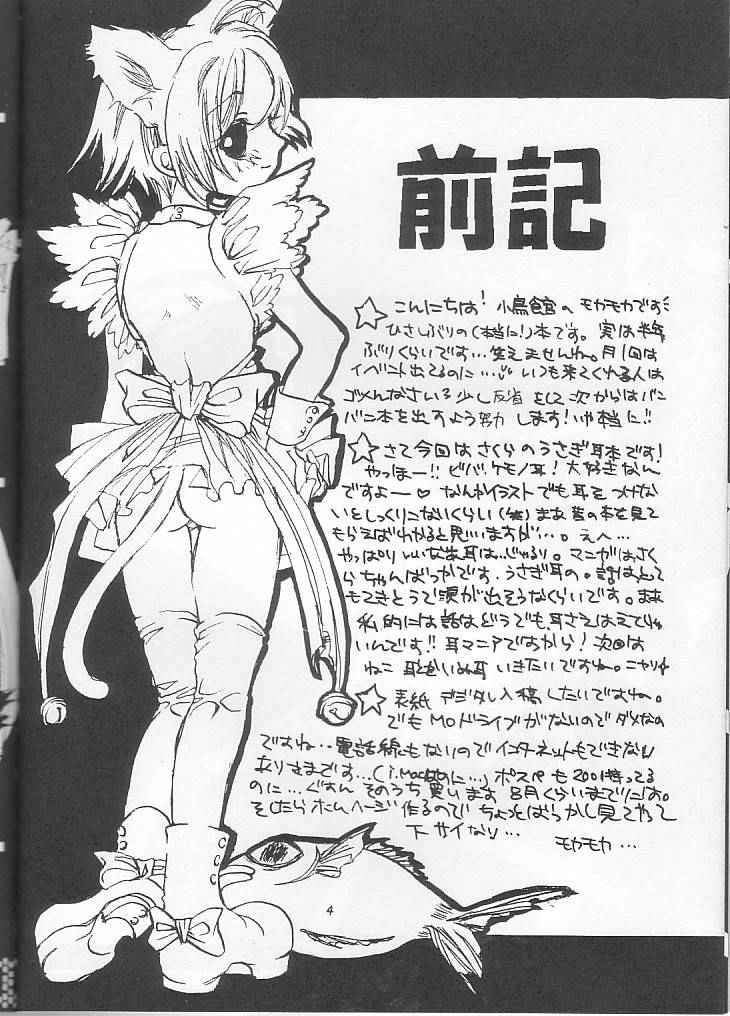 前記
☆こんにちは！小鳥館のモカモカです
ひさしぶりの(本当に！)本です。実は半年
ぶりくらいです…笑えませんね。月1回は
イベント出てるのに…いつも来てくれる人は
ゴメんなさい 少し反省をして次からはバン
バン本を出すよう努力します！いや本当に!!
☆さて今回はさくらのうさぎ耳本です！
やっほー!!ビバ、ケモノ耳！大好きなん
ですよー♡なんかイラストでも耳をつけな
いとしっくりこないくらい(笑)まあ昔の本を見て
もらえばわかると思いますが…。えへ…
やっぱりいいなあ耳は…じゅるり。マンガはさく
らちゃんばっかです。うさぎ耳の。話はとて
もてきとうで涙が出そうなくらいです。まあ
私的には話はどうでも、耳さえはえてりゃ
いんです!!耳マニアですから！次回は
ねこ耳とかいぬ耳いきたいですね。ニヤリ
☆表紙デジタル入稿したいですね。
でもMOドライブがないのでダメなの
ですね…電話線もないのでインターネットもできない
ありさまです…(i.Macなのに…)ポスペも2001持ってる
のに…ぐすん そのうち買います 8月くらいまでには。
そしたらホームページ作るのでちょっとばっかし見てやって
下サイな…
モカモカ…
4